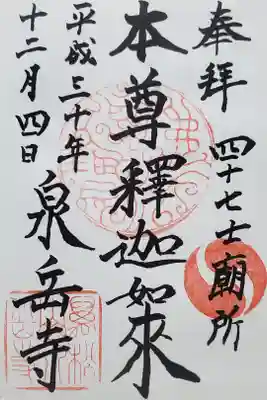 奉拝 四十七士廟所
本尊釋迦如來
平成三十年
十二月四日 泉岳寺